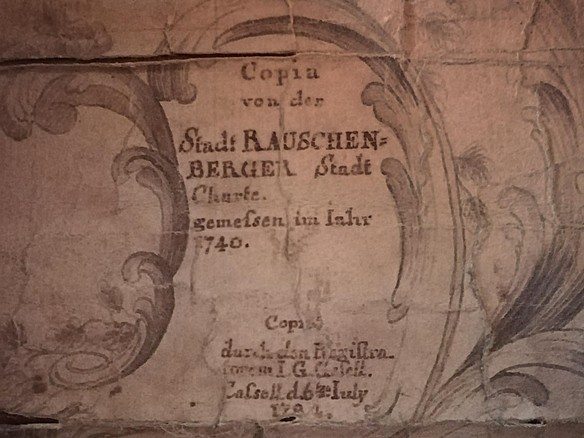 Copia
von der
Stadt RAUSCHEN=
BERGER Stadt
Charte.
gemessen im Jahr
1740.
Copirt
durch den Registra-
I. G.
Cassell d. 6ten July